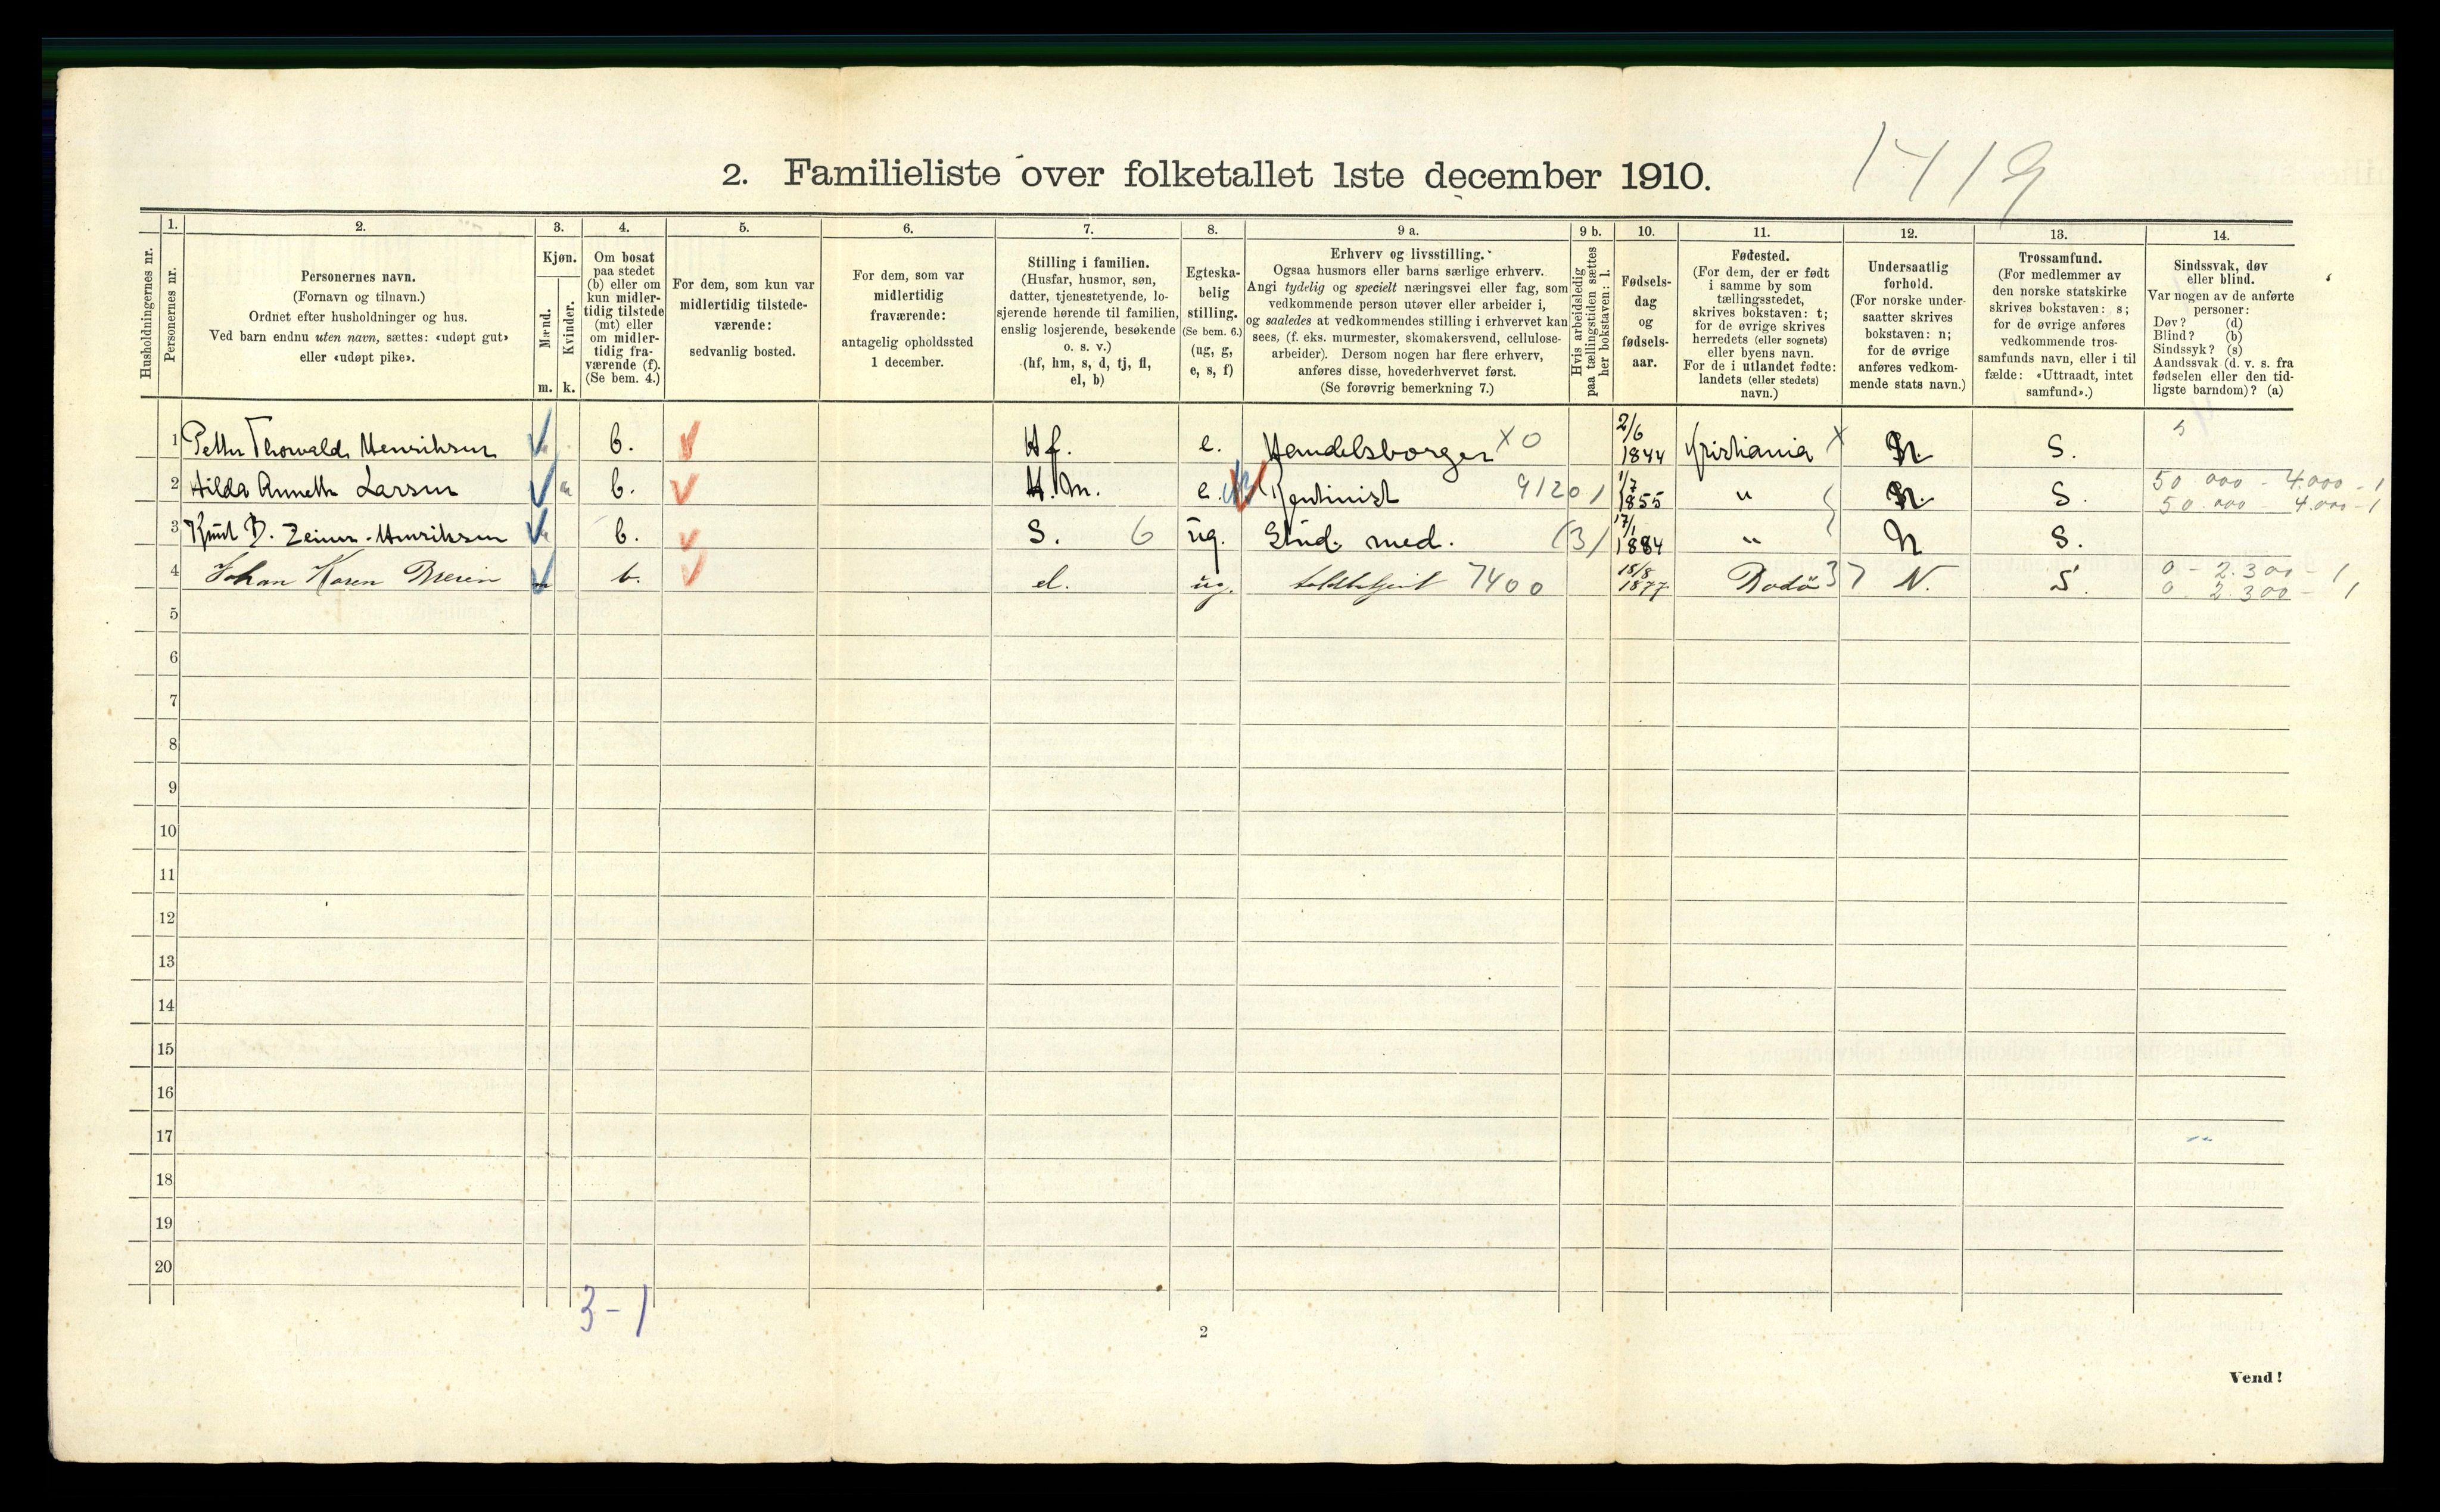 1419
2. Familieliste over folketallet 1ste december 1910.
Husholdningernes nr.
1.
Personernes nr.
2.
Personernes navn.
(Fornavn og tilnavn.)
Ordnet efter husholdninger og hus.
Ved barn endnu uten navn, sættes: «udøpt gut»
eller «udøpt pike».
3.
Kjøn.
Mænd.
Kvinder.
m. k.
4.
Om bosat
paa stedet
(b) eller om
kun midler-
tidig tilstede
(mt) eller
om midler-
tidig fra-
værende (f).
(Se bem. 4.)
5.
For dem, som kun var
midlertidig tilstede-
værende:
sedvanlig bosted.
6.
For dem, som var
midlertidig
fraværende:
antagelig opholdssted
1 december.
7.
Stilling i familien.
(Husfar, husmor, søn,
datter, tjenestetyende, lo-
sjerende hørende til familien,
enslig losjerende, besøkende
o. s. v.)
(hf, hm, s, d, tj, fl,
el, b)
8.
Egteska-
belig
stilling.
(Se bem. 6.)
(ug, g,
e, s, f)
9 a.
Erhverv og livsstilling.
Ogsaa husmors eller barns særlige erhverv.
Angi tydelig og specielt næringsvei eller fag, som
vedkommende person utøver eller arbeider i,
og saaledes at vedkommendes stilling i erhvervet kan
sees, (f. eks. murmester, skomakersvend, cellulose-
arbeider). Dersom nogen har flere erhverv,
anføres disse, hovederhvervet først.
(Se forøvrig bemerkning 7.)
9 b.
Hvis arbeidsledig
paa tællingstiden sættes
her bokstaven: l.
10.
Fødsels-
dag
og
fødsels-
aar.
11.
Fødested.
(For dem, der er født
i samme by som
tællingsstedet,
skrives bokstaven: t;
for de øvrige skrives
herredets (eller sognets)
eller byens navn.
For de i utlandet fødte:
landets (eller stedets)
navn.)
12.
Undersaatlig
forhold.
(For norske under-
saatter skrives
bokstaven: n;
for de øvrige
anføres vedkom-
mende stats navn.)
13.
Trossamfund.
(For medlemmer av
den norske statskirke
skrives bokstaven: s;
for de øvrige anføres
vedkommende tros-
samfunds navn, eller i til
fælde: «Uttraadt, intet
samfund».)
14.
Sindssvak, døv
eller blind.
Var nogen av de anførte
personer:
Døv? (d)
Blind? (b)
Sindssyk? (s)
Aandssvak (d. v. s. fra
fødselen eller den tid-
ligste barndom)? (a)
1 Petter Thorvald Henriksen b. Hf. e. Handelsborger X0 2/6 1844 Kristiania X N. S.
2 Hilda Anneth Larsen b. H.m. e. Rentinist 9120 1/7 1855 " N. S. 50 000 - 4.000 - 1
50.000 - 4.000 - 1
3 Knut B. Zeiner-Henriksen b. S. 6 ug. Stud. med. (3) 17/1 1884 " N S.
4 Johan Koren b. el. ug. 7400 18/8 1877 Bodö 37 N. S. 0 - 2.300 - 1
0 2.300 - 1
5
6
7
8
9
10
11
12
13
14
15
16
17
18
19
20
3-1
2
Vend!